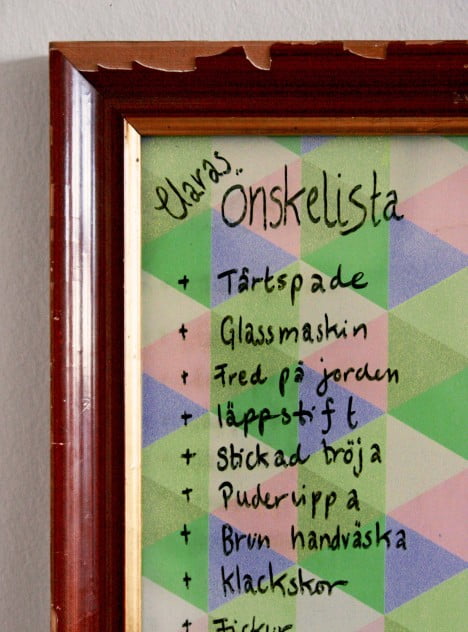 Claras
önskelista
+ Tårtspade
+ Glassmaskin
+ Fred på jorden
+ läppstift
+ Stickad tröja
+ Pudervippa
+ Brun handväska
+ klackskor
+